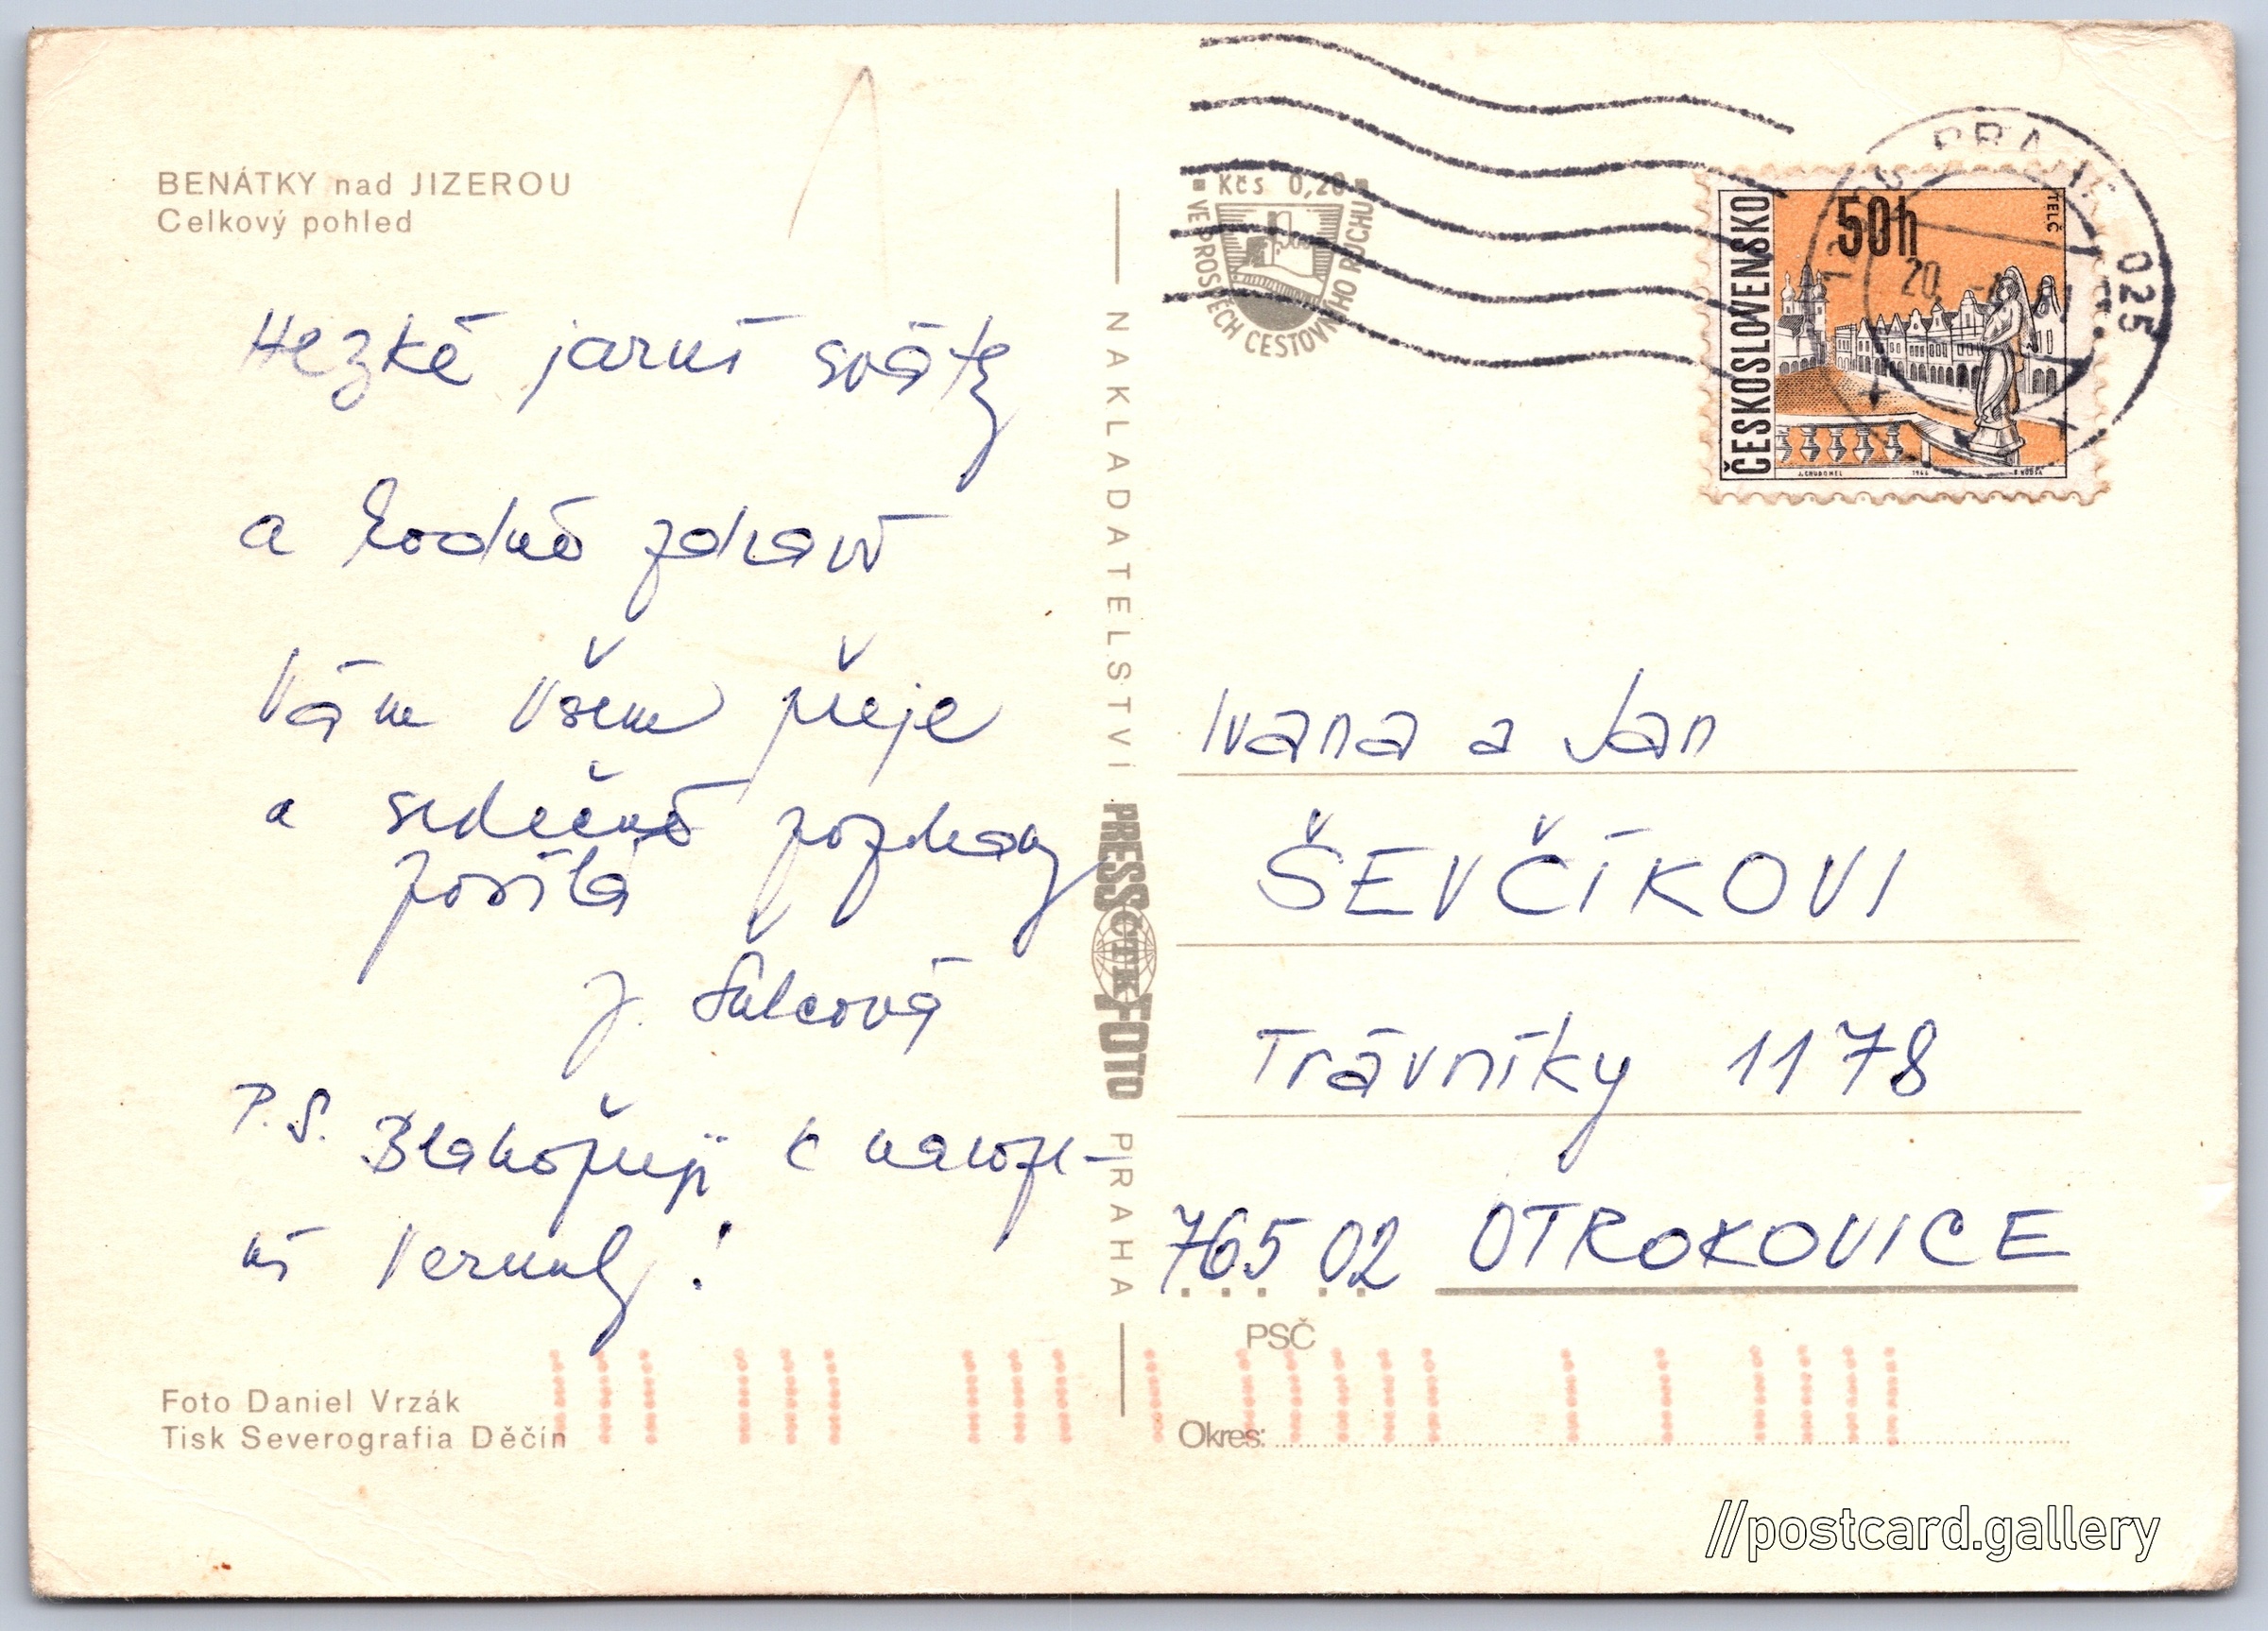 BENÁTKY nad JIZEROU
Celkový pohled
Hezké jarní svátky
a hodně zdraví
Vám všem přeje
a srdečné pozdravy
posílá
J. Šulcová
P.S. Blahopřeji k naroze-
ní Verunky!
Foto Daniel Vrzák
Tisk Severografia Děčín
NAKLADATELSTVÍ PRESSFOTO PRAHA
ČTK
Kčs 0,20
VE PROSPĚCH CESTOVNÍHO RUCHU
PRAHA 025
20.
ČESKOSLOVENSKO
50h
TELČ
J. CHUDOMEL 1966
Ivana a Jan
ŠEVČÍKOVI
Trávníky 1178
765 02 OTROKOVICE
PSČ
Okres:
//postcard.gallery